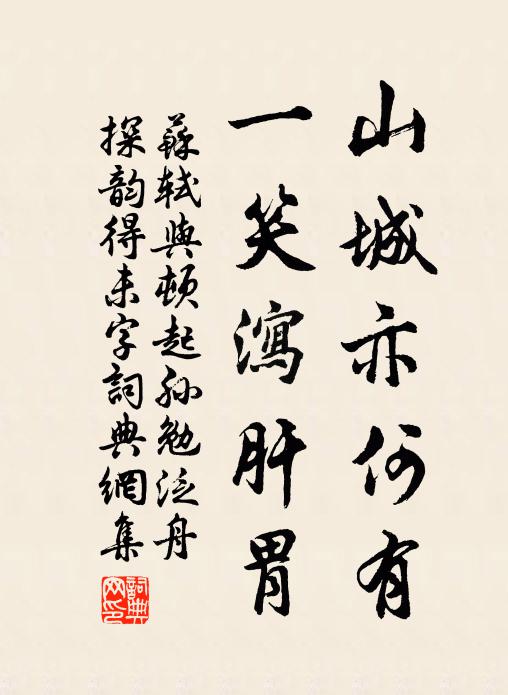 山城亦何有
一笑瀉肝胃
蘇軾與頓起孫勉泛舟
探韵得未字詞典網集
詞典
网印